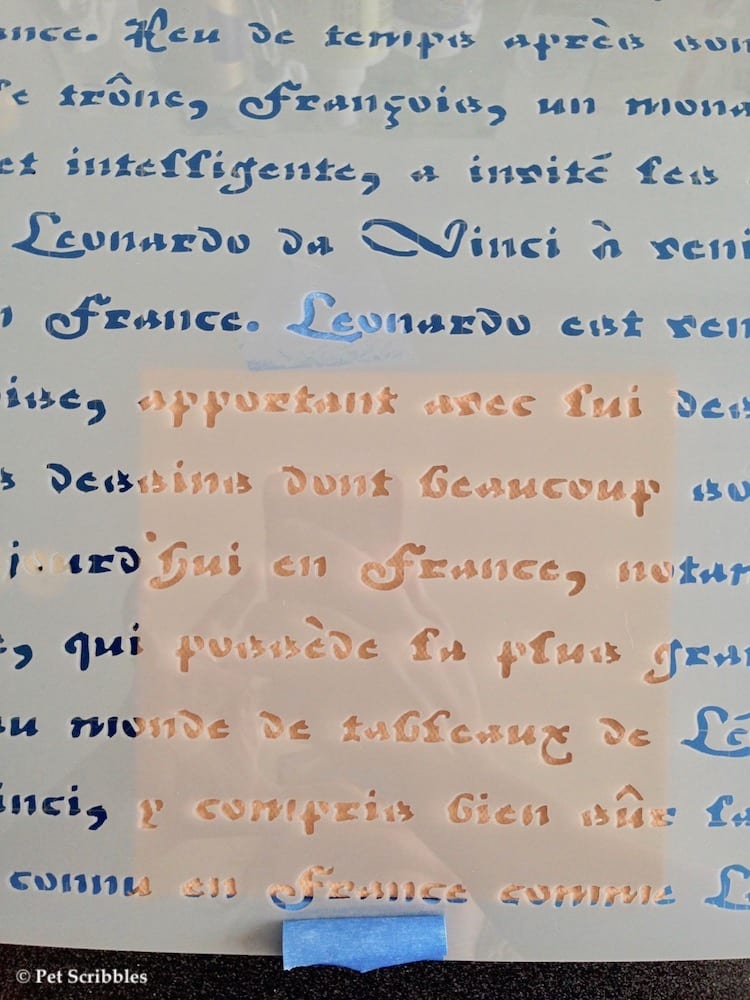 ance. Peu de temps après son
le trône, François, un mona
et intelligente, a invité les
Leonardo da Vinci à veni
n France. Leonardo est ven
oise, apportant avec lui des
s dessins dont beaucoup so
jourd'hui en France, notam
e, qui possède la plus gran
au monde de tableaux de Lé
inci, y compris bien sûr la
connu en France comme L
© Pet Scribbles